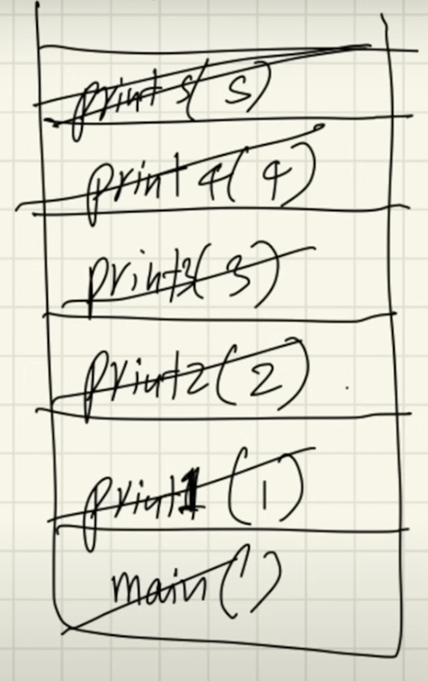 print5(5)
print4(4)
print3(3)
print2(2)
print1(1)
main()